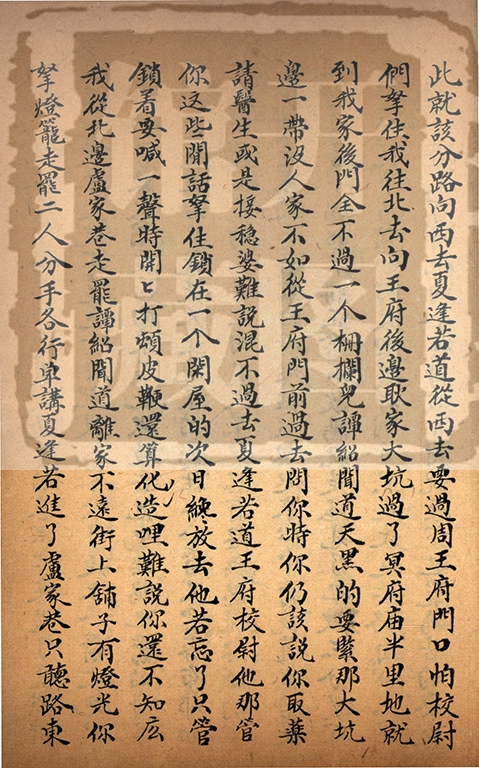 此就該分路向西去夏逢若道從西去要過周王府門口怕校尉
們拏住我往北去向王府後邊耿家大坑過了冥府庙半里地就
到我家後門全不過一个柵欄兒譚紹聞道天黑的要緊那大坑
邊一帶沒人家不如從王府門前過去問你時你仍該說你取藥
請醫生或是接穩婆難說混不過去夏逢若道王府校尉他那管
你这些閒話拏住鎖在一个閑屋的次日纔放去他若忘了只管
鎖着要喊一聲時開〻打頓皮鞭還算化造哩難說你還不知広
我從北邊盧家巷走罷譚紹聞道離家不遠街上舖子有燈光你
拏燈籠走罷二人分手各行单講夏逢若進了盧家巷只聽路東